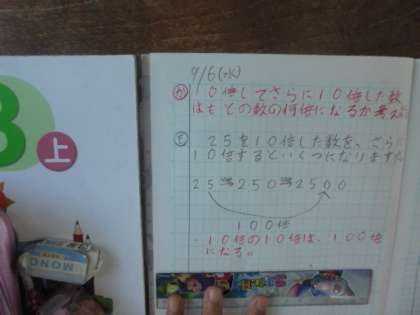 3
上
9/6(水)
か 10倍してさらに10倍した数
はもとの数の何倍になるか考えよう
も 25を10倍した数を、さらに
10倍するといくつになりますか。
25 250 2500
100倍
・10倍の10倍は、100倍
になる。
MONO